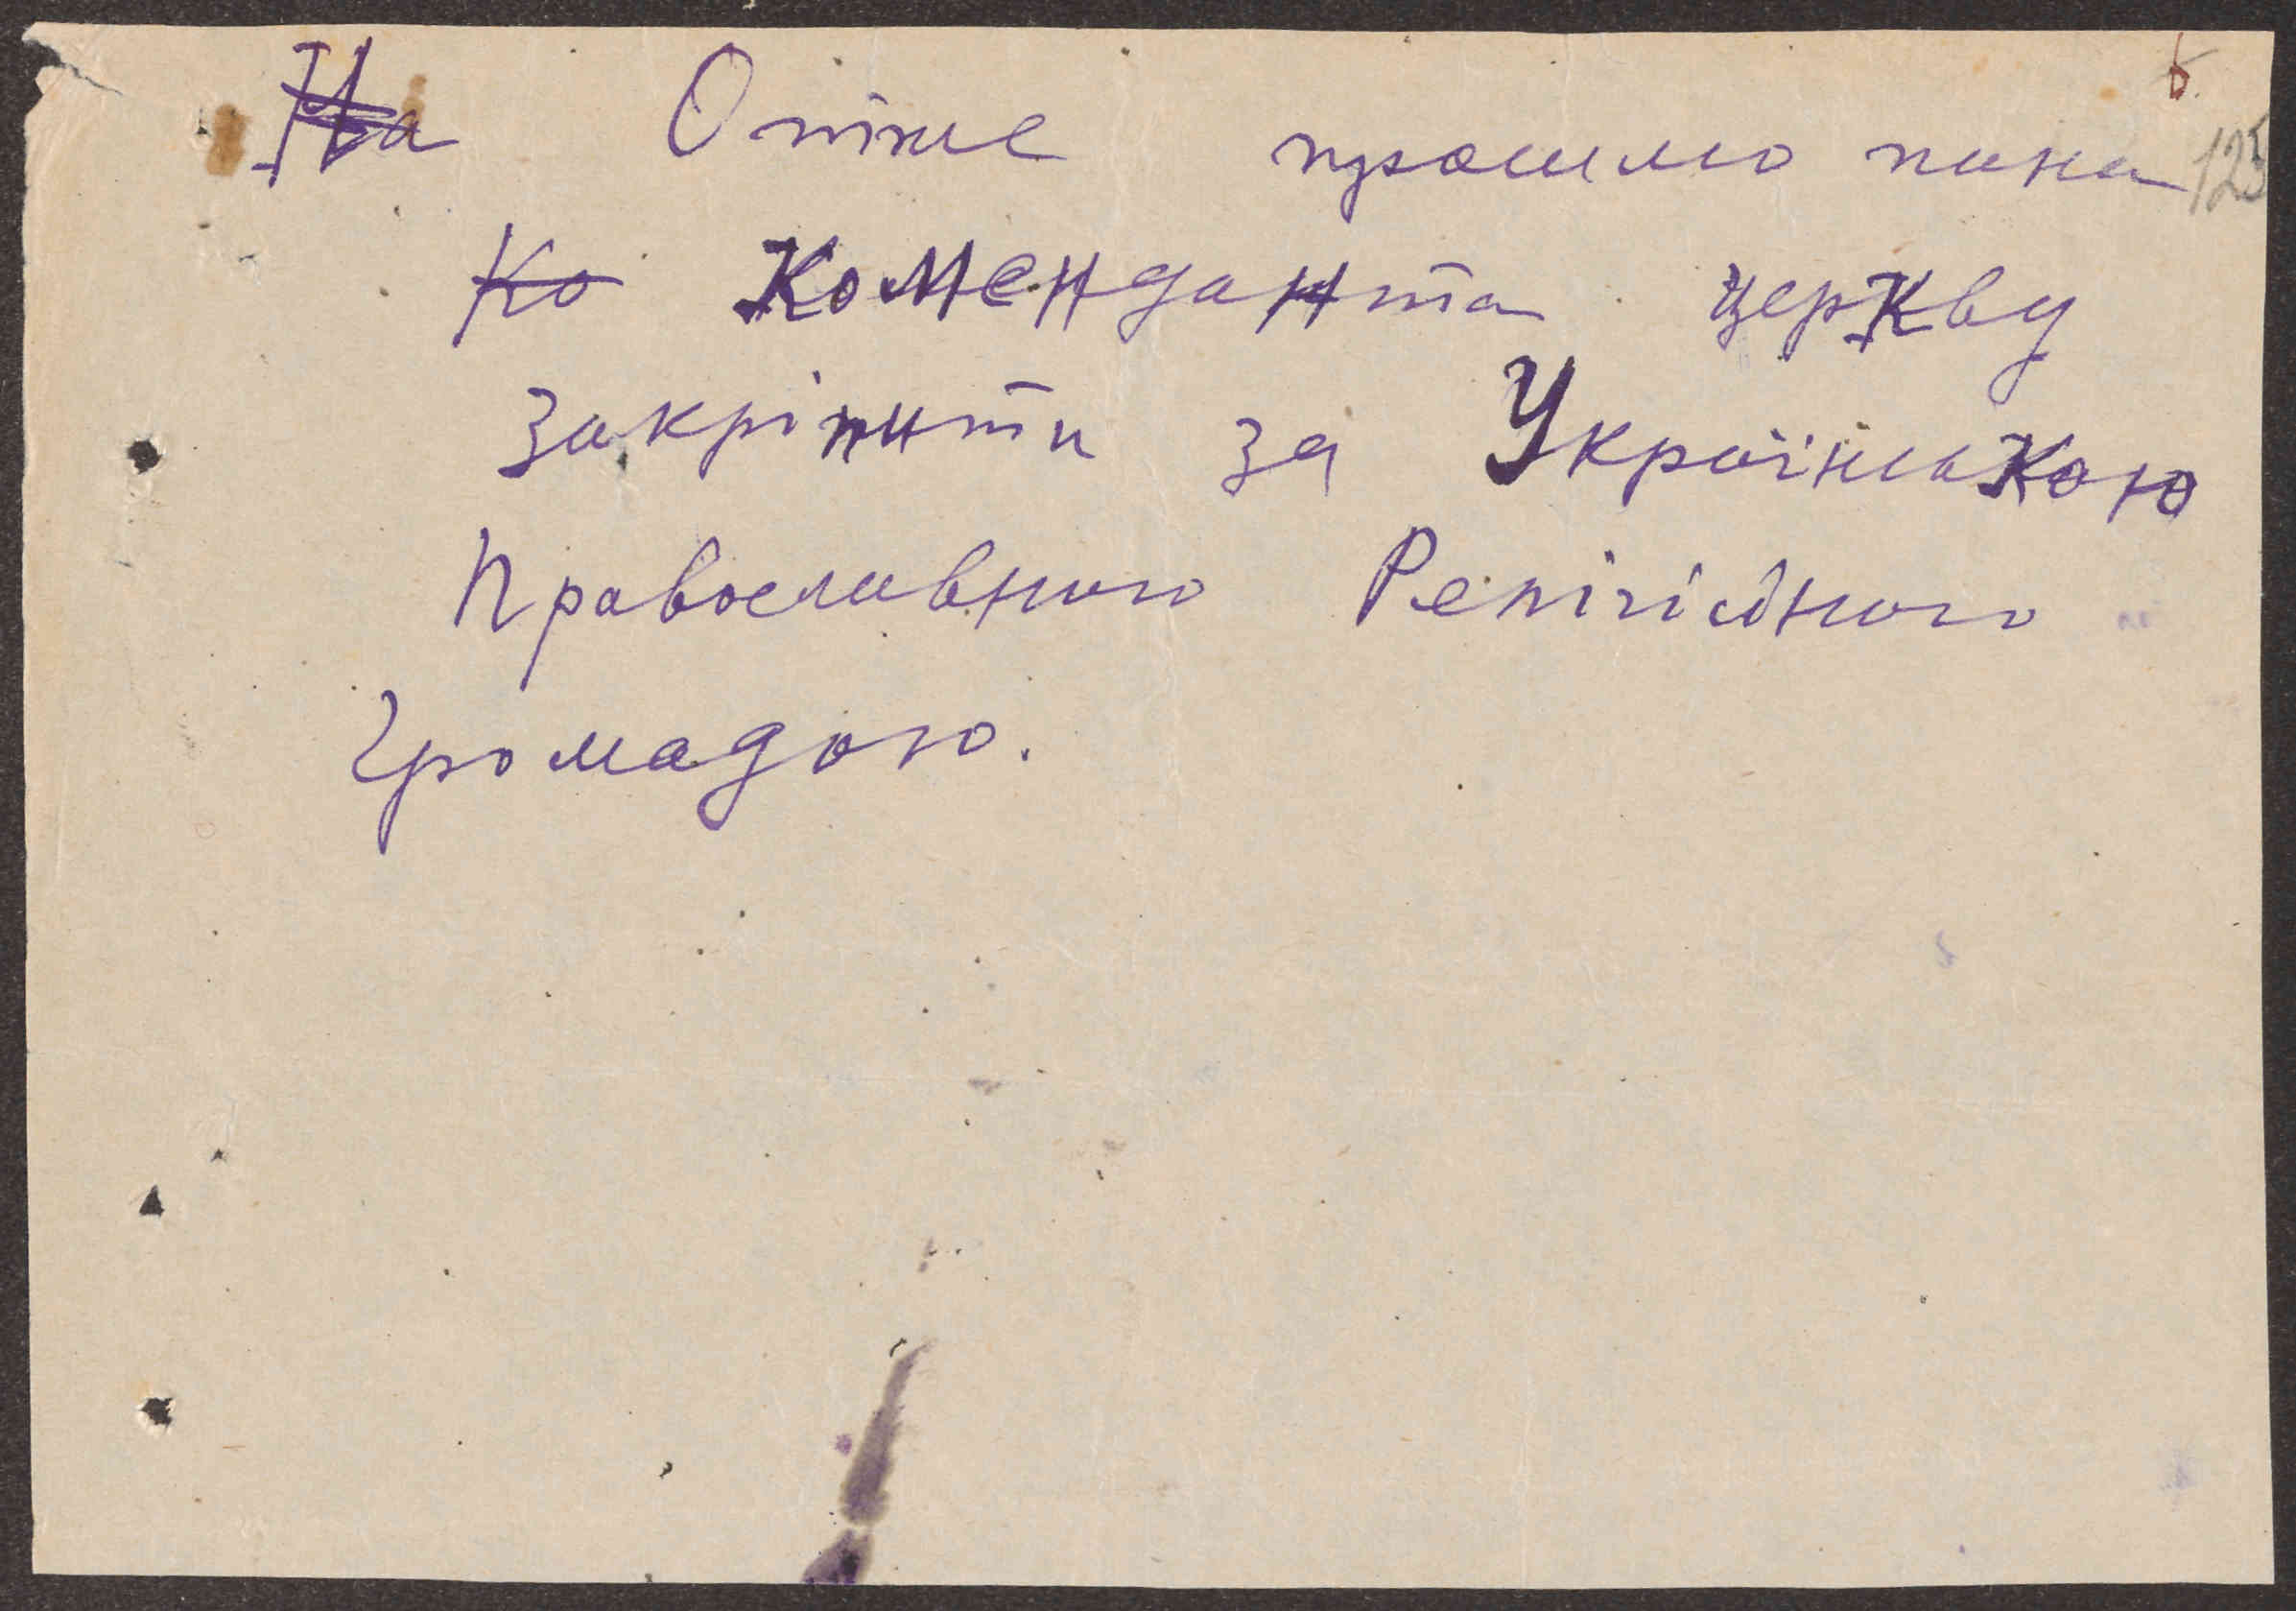 На Отже просимо пана
Ко Коменданта церкву
закріпити за Українською
Православною Релігійною
Громадою.
125